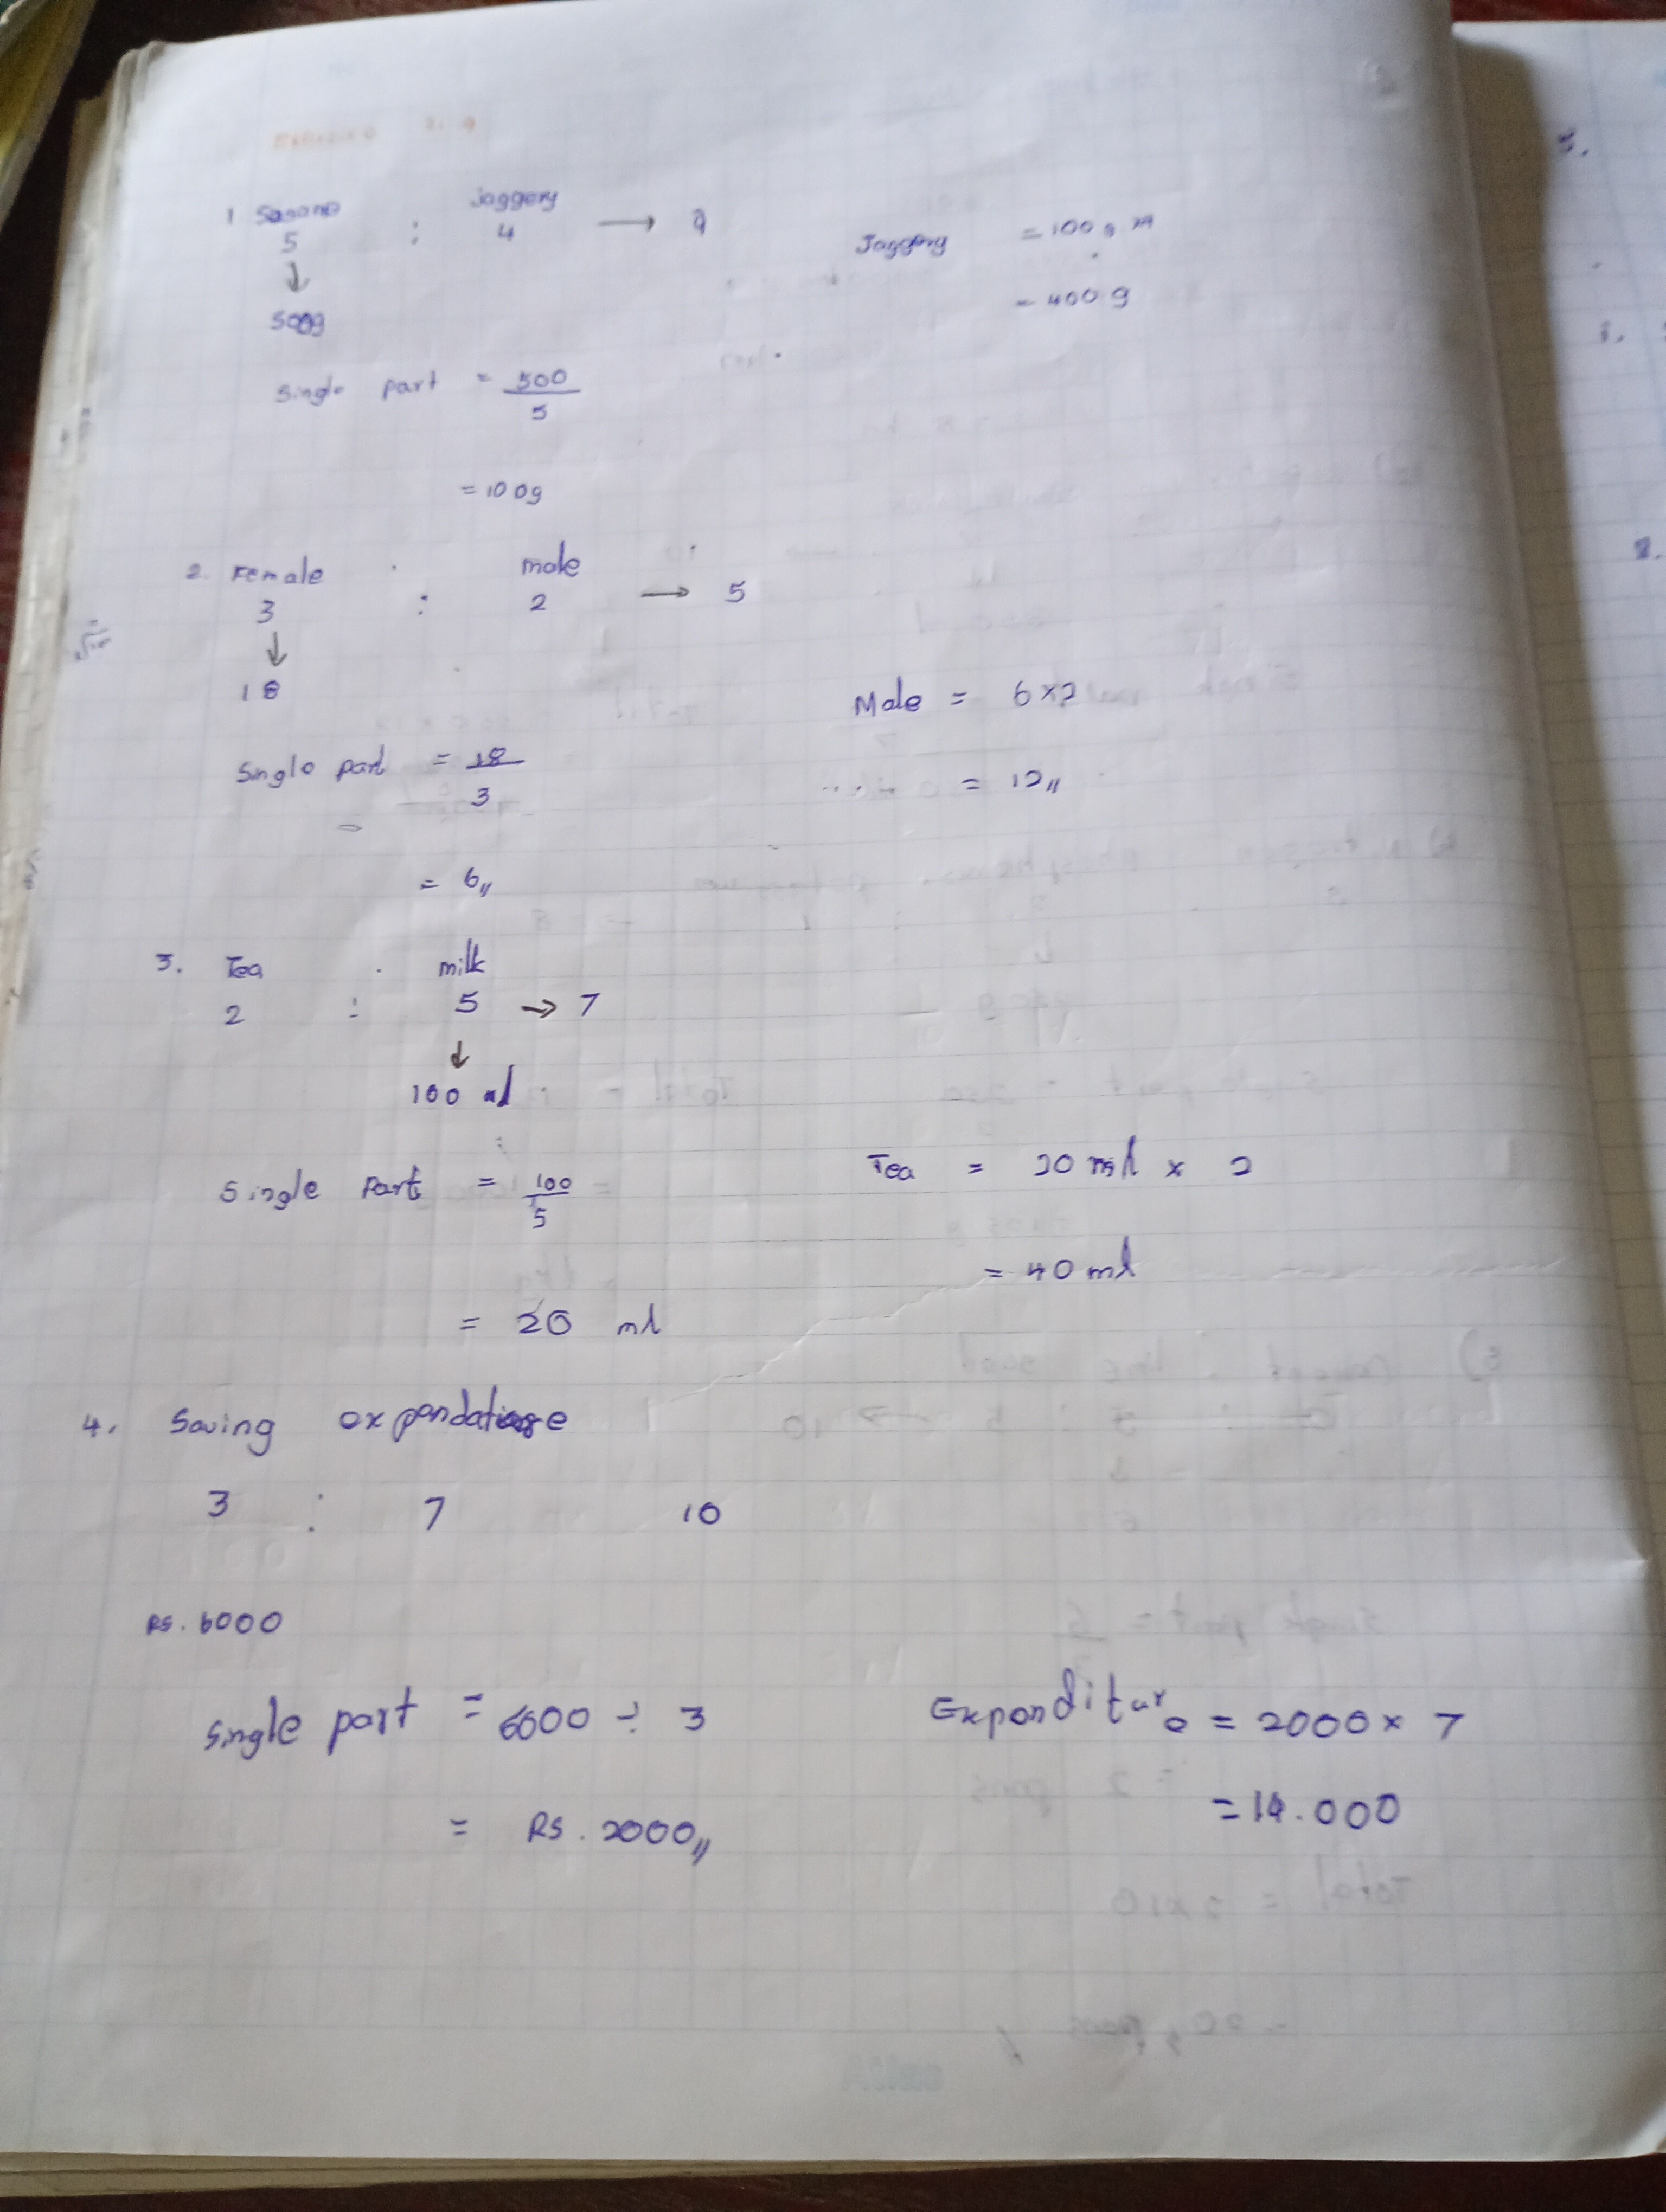 1 Sesame jaggery
5 : 4 → 9
↓
500g
Jaggery = 100 g × 4
= 400 g
Single part = 500/5
= 100g
2. Female : male
3 : 2 → 5
↓
18
Single part = 18/3
=
= 6"
Male = 6 × 2
= 12"
3. Tea . milk
2 : 5 → 7
↓
100 ml
Single Part = 100/5
= 20 ml
Tea = 20 ml × 2
= 40 ml
4. Saving
3 : 7 10
Rs. 6000
Single part = 6000 ÷ 3
= RS. 2000"
Expenditure = 2000 × 7
= 14.000